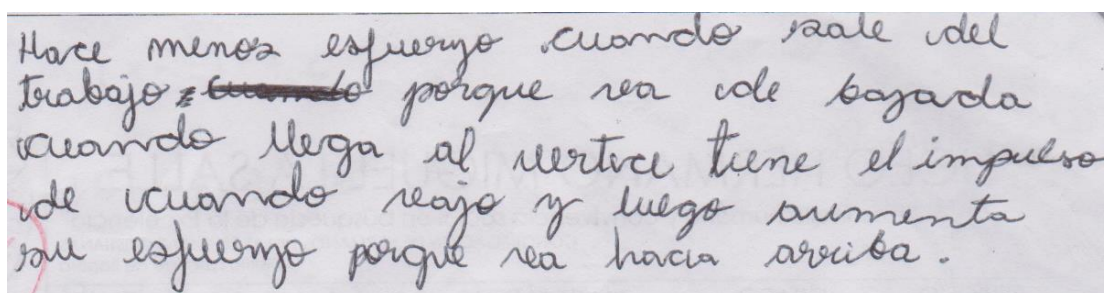 Hace menos esfuerzo cuando sale del
trabajo porque va de bajada
cuando llega al vertice tiene el impulso
de cuando vajo y luego aumenta
su esfuerzo porque va hacia arriba.